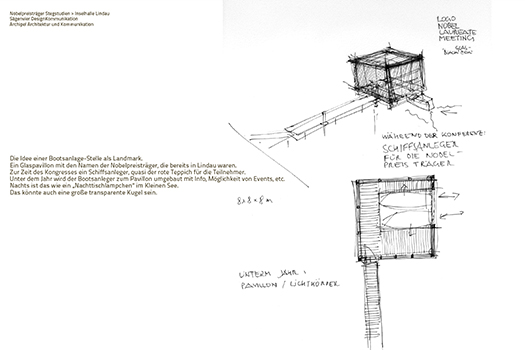 Nobelpreisträger Stegstudien > Inselhalle Lindau
Sägenvier DesignKommunikation
Archipel Architektur und Kommunikation
LOGO
NOBEL
LAUREATE
MEETING
GLAS-
Die Idee einer Bootsanlage-Stelle als Landmark.
Ein Glaspavillon mit den Namen der Nobelpreisträger, die bereits in Lindau waren.
Zur Zeit des Kongresses ein Schiffsanleger, quasi der rote Teppich für die Teilnehmer.
Unter dem Jahr wird der Bootsanleger zum Pavillon umgebaut mit Info, Möglichkeit von Events, etc.
Nachts ist das wie ein „Nachttischlämpchen" im Kleinen See.
Das könnte auch eine große transparente Kugel sein.
WÄHREND DER KONFERENZ:
SCHIFFSANLEGER
FÜR DIE NOBEL-
PREIS TRÄGER
8x8x8 m
UNTERM JAHR:
PAVILLON / LICHTKÖRPER